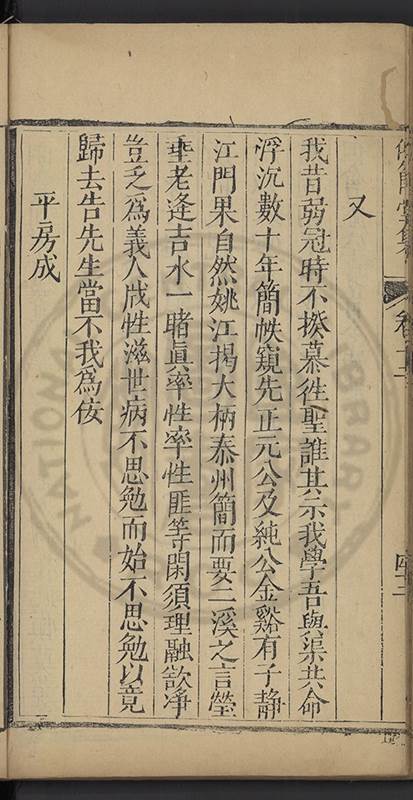 又
我昔弱冠時不揆慕徃聖誰其示我學吾與渠共命
浮沉數十年簡帙窺先正元公及純公金谿有子靜
江門果自然姚江揭大柄泰州簡而要二溪之言瑩
垂老逢吉水一睹眞率性率性匪等閑須理融欲凈
豈乏為義人戕性滋世病不思勉而始不思勉以竟
歸去告先生當不我為佞
平房成